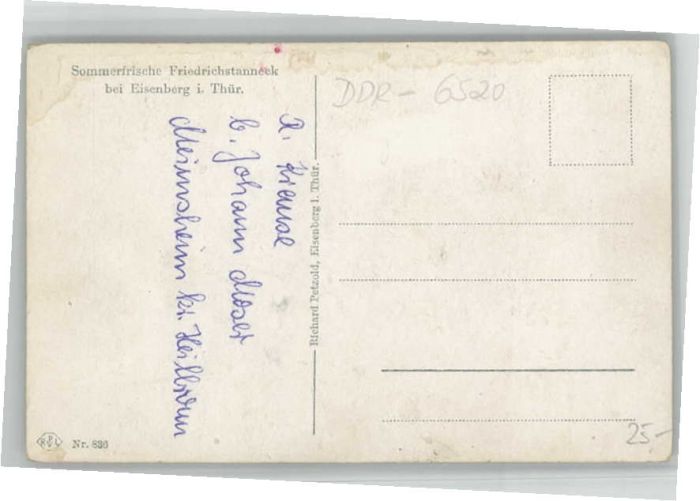 Sommerfrische Friedrichstanneck
bei Eisenberg i. Thür.
DDR - 6520
R. Krause
b. Johann Moser
Meimsheim kr. Heilbronn
Richard Petzold, Eisenberg i. Thür.
Nr. 836
25-